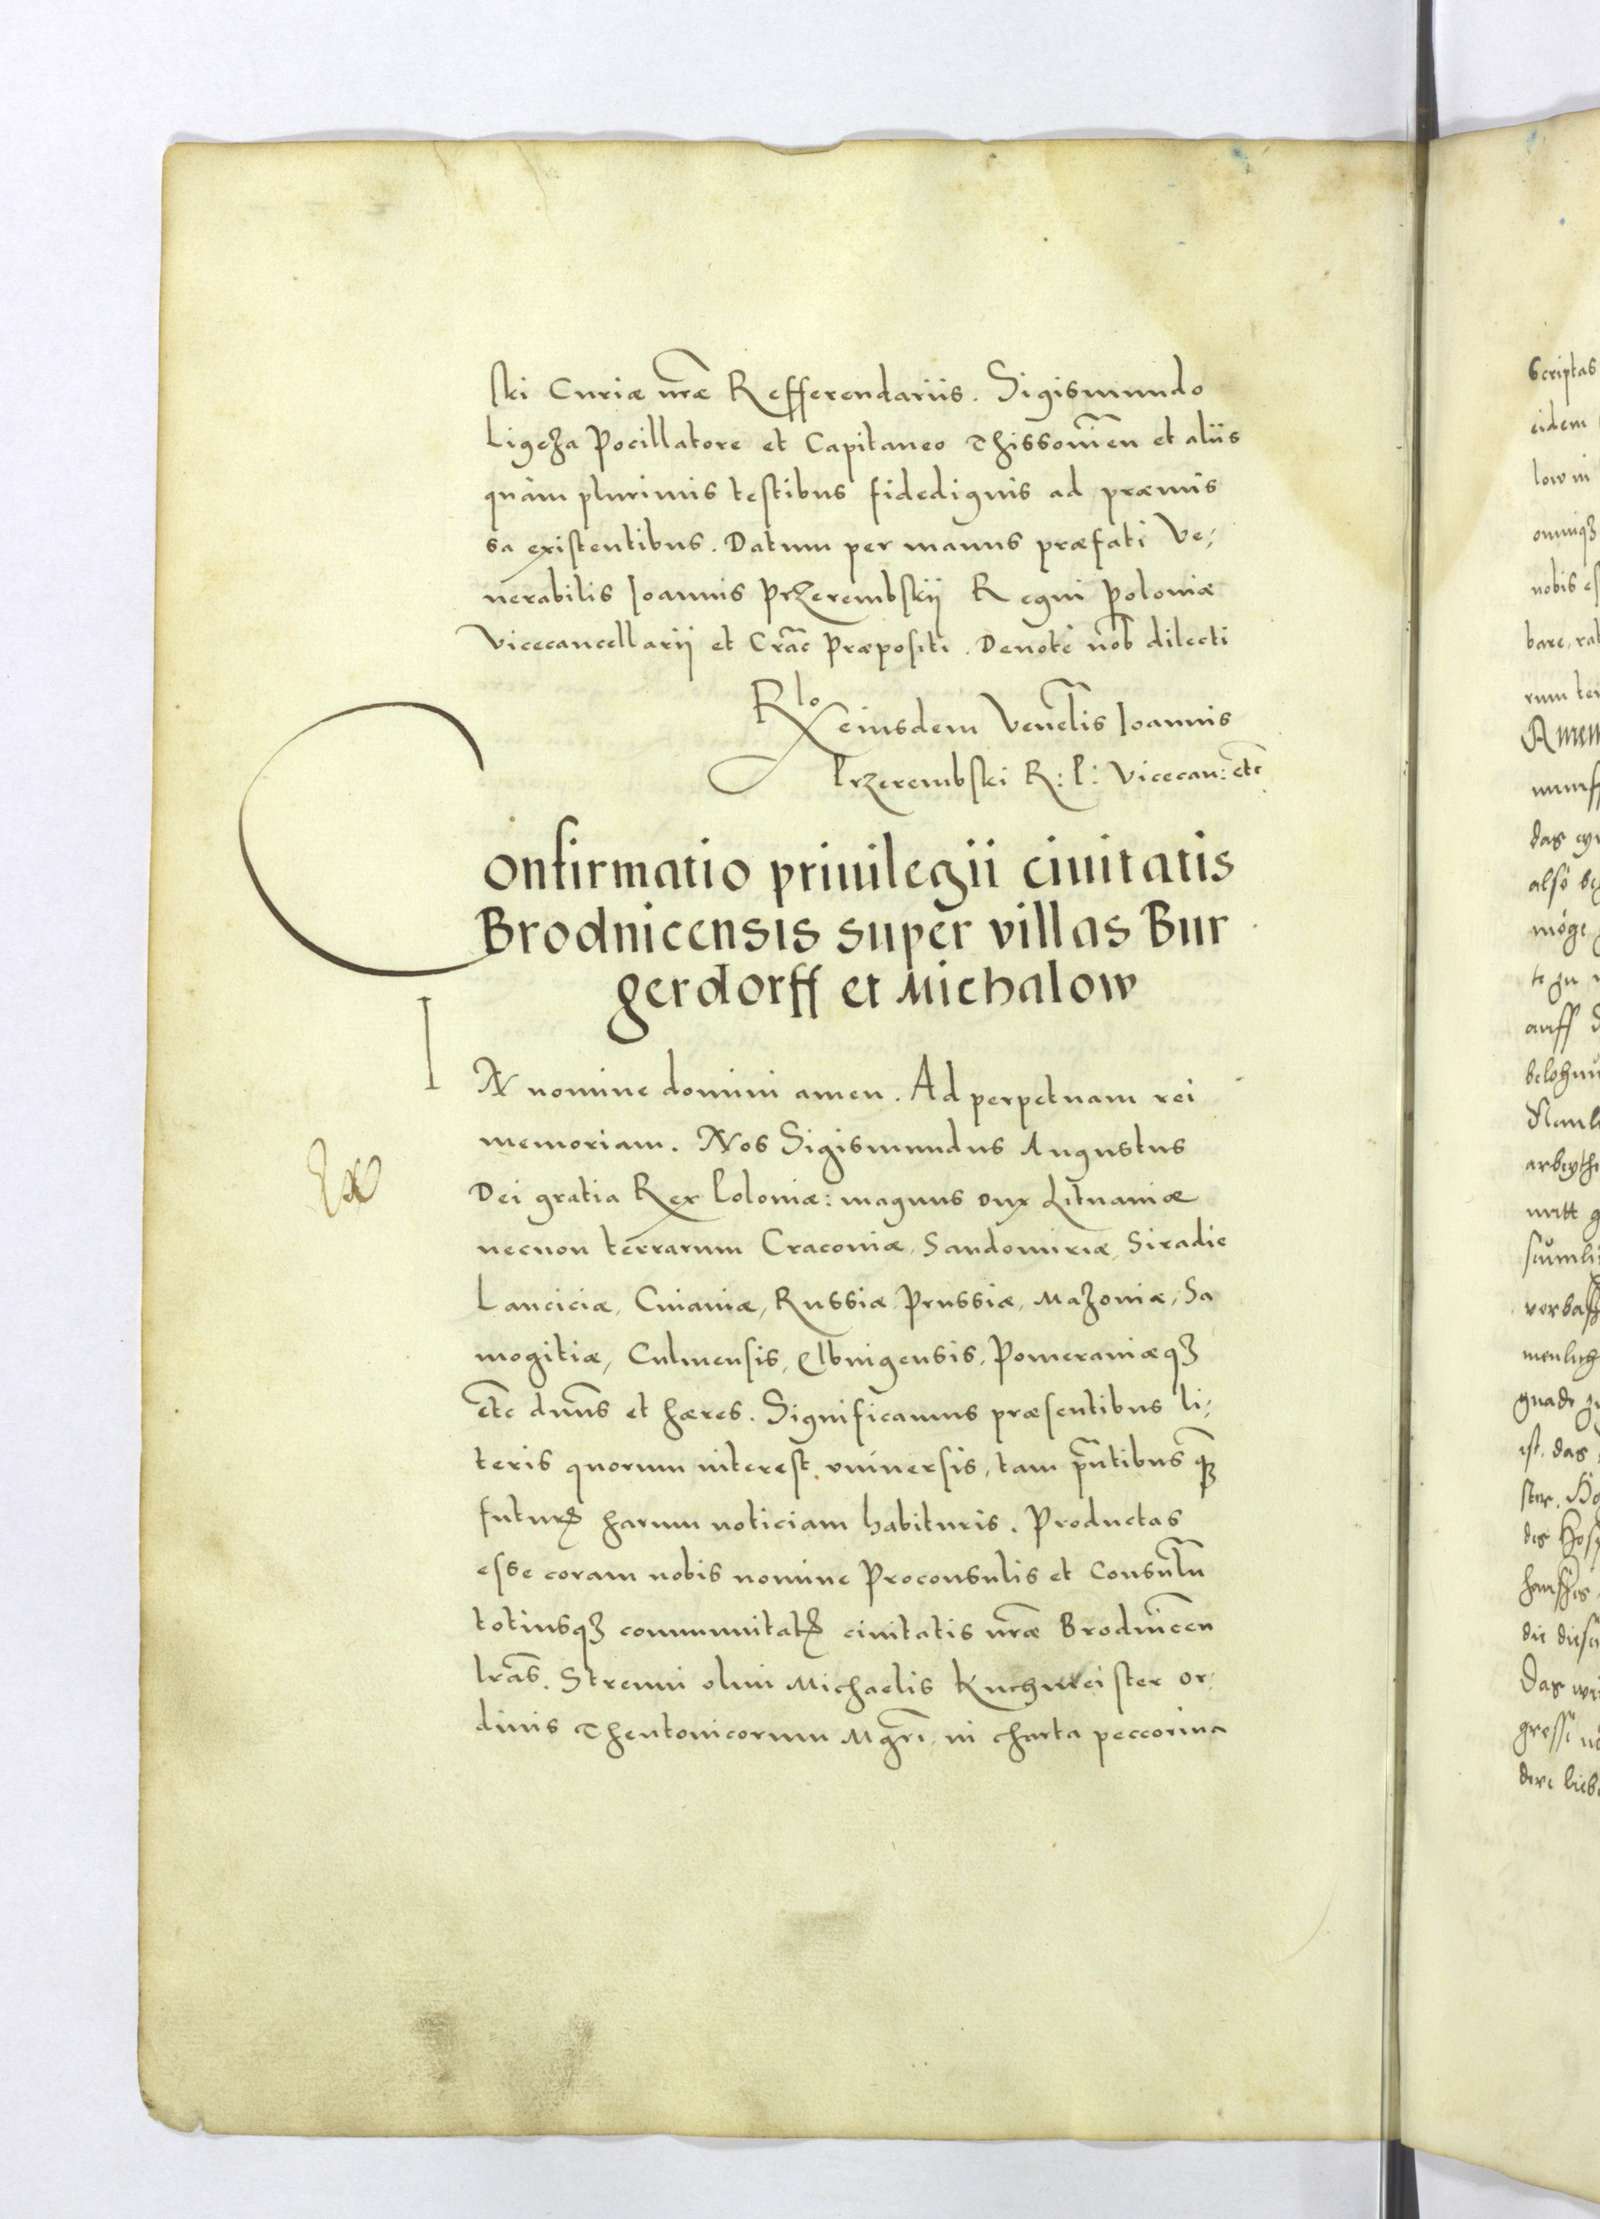 ski Curiæ nr̃æ Refferendariis. Sigismundo
Ligeza Pocillatore et Capitaneo Thissouien̄ et aliis
quàm plurimis testibus fidedignis ad præmis
sa existentibus. Datum per manus præfati Ve;
nerabilis Ioannis Przerembskij Regni Poloniæ
Vicecancellarij et Crac̄ Præpositi. Deuotè nob̄ dilecti
Rlo eiusdem Ven̄elis Ioannis
Przerembski R: P: Vicecan: etc̄
Confirmatio priuilegii ciuitatis
Brodnicensis super villas Bur
gerdorff et Michalow
IN nomine domini amen. Ad perpetuam rei
memoriam. Nos Sigismundus Augustus
Dei gratia Rex Poloniæ: magnus Dux Lituaniæ
necnon terrarum Cracouiæ, Sandomiriæ, Siradie
Lanciciæ, Cuiauiæ, Russiæ, Prussiæ, Mazouiæ, Sa
mogitiæ, Culmensis, Elbingensis, Pomeraniæqꝫ
etc̄ dnūs et hæres. Significamus præsentibus li;
teris quorum interest, vniuersis, tam pn̄tibus qꝫ̄
futurꝭ harum noticiam habituris. Productas
esse coram nobis nomine Proconsulis et Consulū
totiusqꝫ communitatꝭ ciuitatis nr̃æ Brodnicen̄
lr̃as. Strenui olim Michaelis Kuchmeister or;
dinis Theutonicorum Mgr̃i, in charta peccorina
Scriptas
eidem
low in
omniqꝫ
nobis es
bare, rat
rum ten
Amen
das
also
möge
auff
ist, das
ster,
des